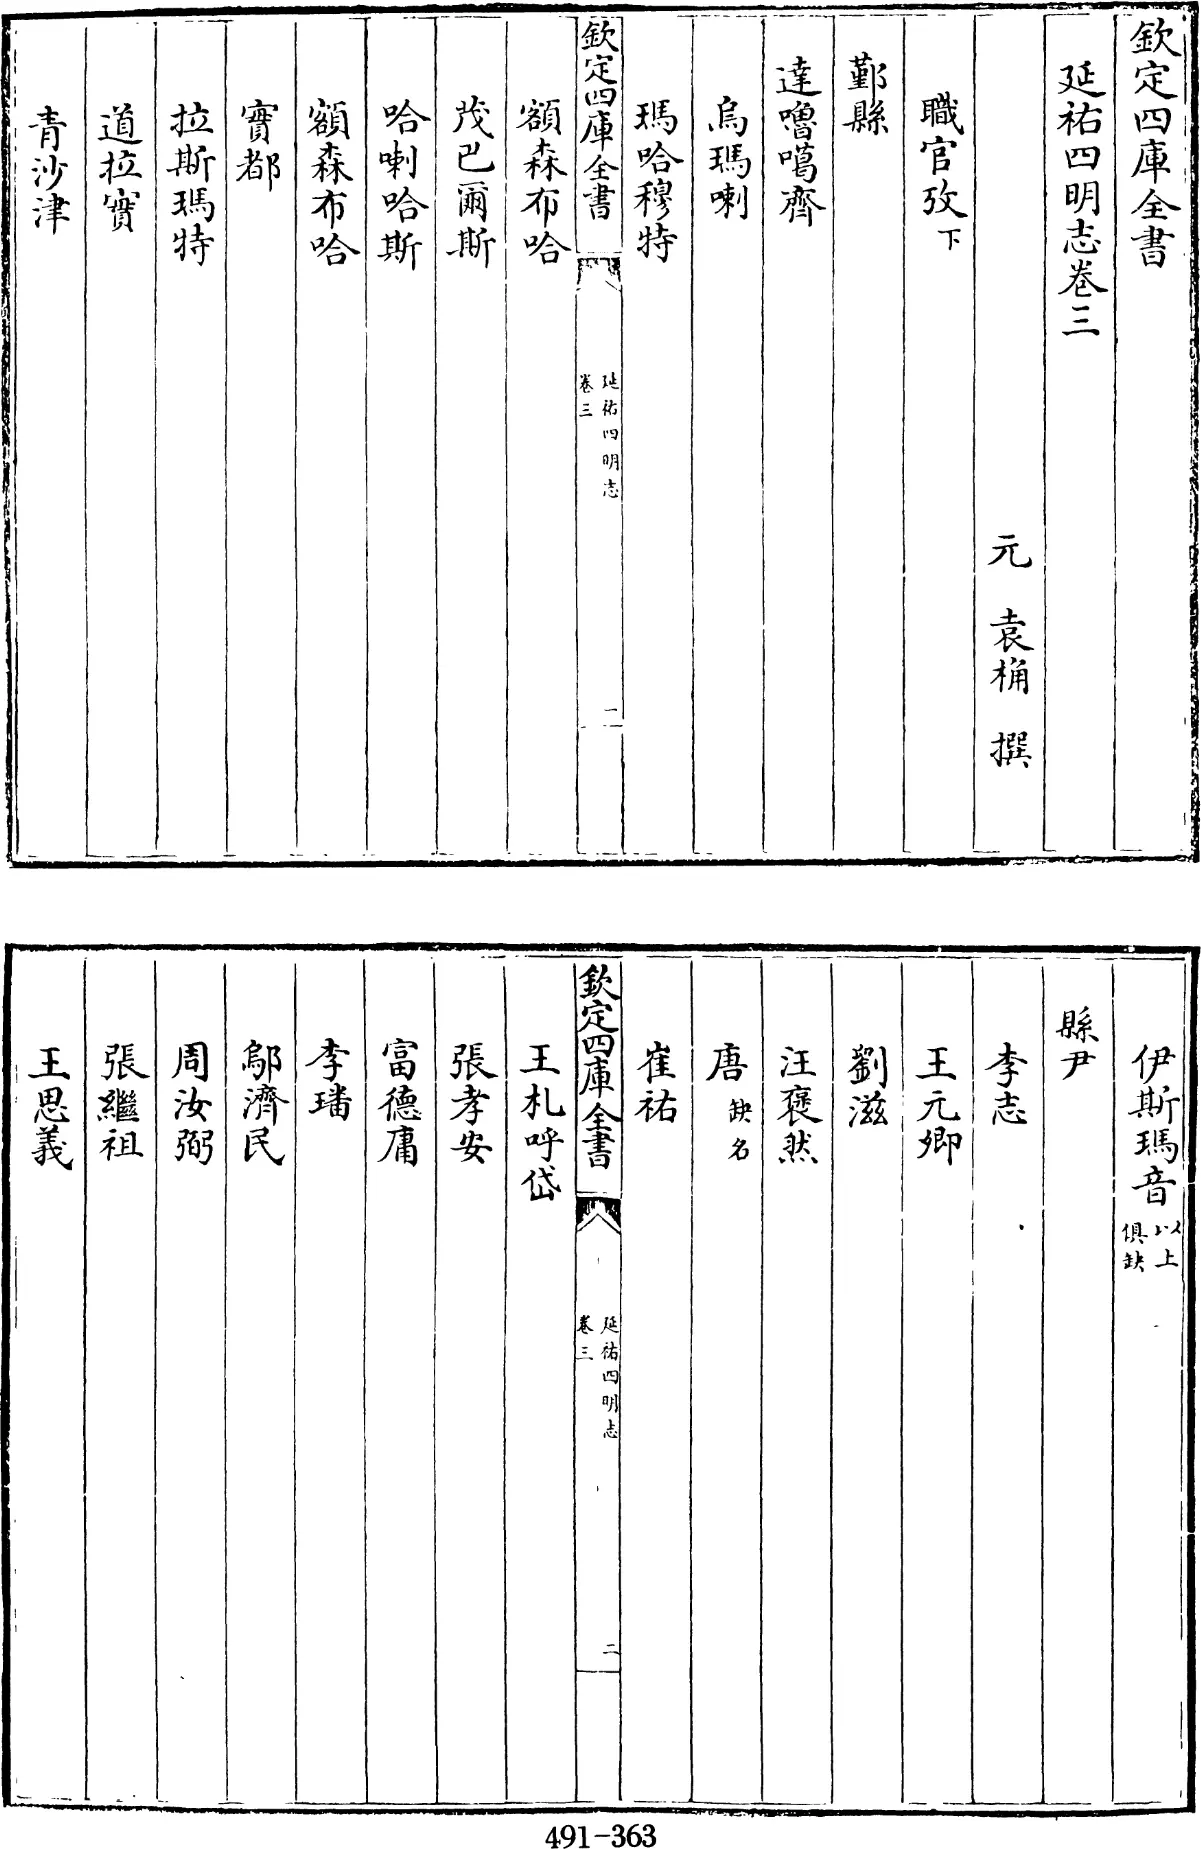 欽定四庫全書
延祐四明志卷三
元 袁桷 撰
職官攷下
鄞縣
達嚕噶齊
烏瑪喇
瑪哈穆特
欽定四庫全書
延祐四明志
卷三
一
額森布哈
茂巴爾斯
哈喇哈斯
額森布哈
寳都
拉斯瑪特
道拉寳
青沙津
伊斯瑪音以上俱缺
縣尹
李志
王元卿
劉滋
汪褒然
唐缺名
崔祐
欽定四庫全書
延祐四明志
卷三
二
王札呼岱
張孝安
富德庸
李璠
鄔濟民
周汝弼
張繼祖
王思義
491-363